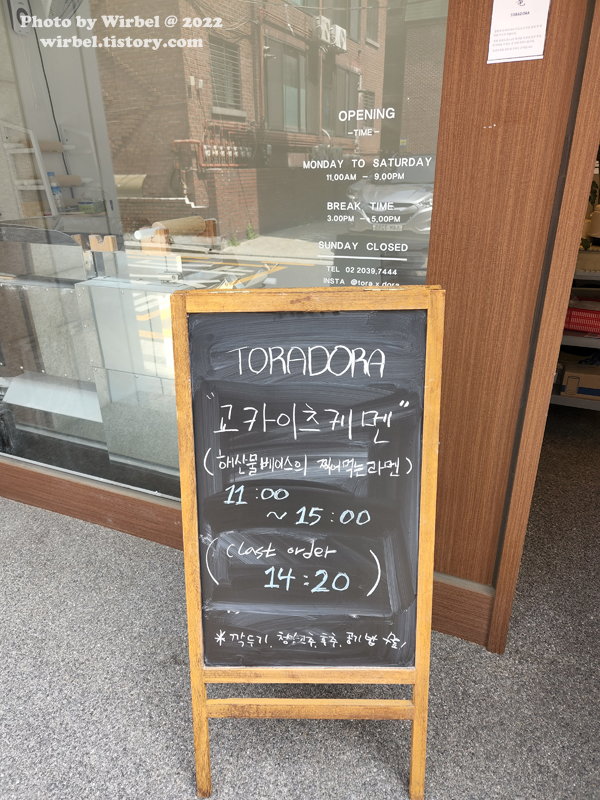 Photo by Wirbel @ 2022
wirbel.tistory.com
TORADORA
OPENING
-TIME-
MONDAY TO SATURDAY
11.00AM - 9.00PM
BREAK TIME
3.00PM - 5.00PM
SUNDAY CLOSED
TEL 02 2039.7444
INSTA @tora x dora
TORADORA
"교카이츠케멘"
(해산물베이스의 찍어먹는라멘)
11:00
~ 15:00
(Last order
14:20)
*깍두기, 청양고추, 후추, 공기밥